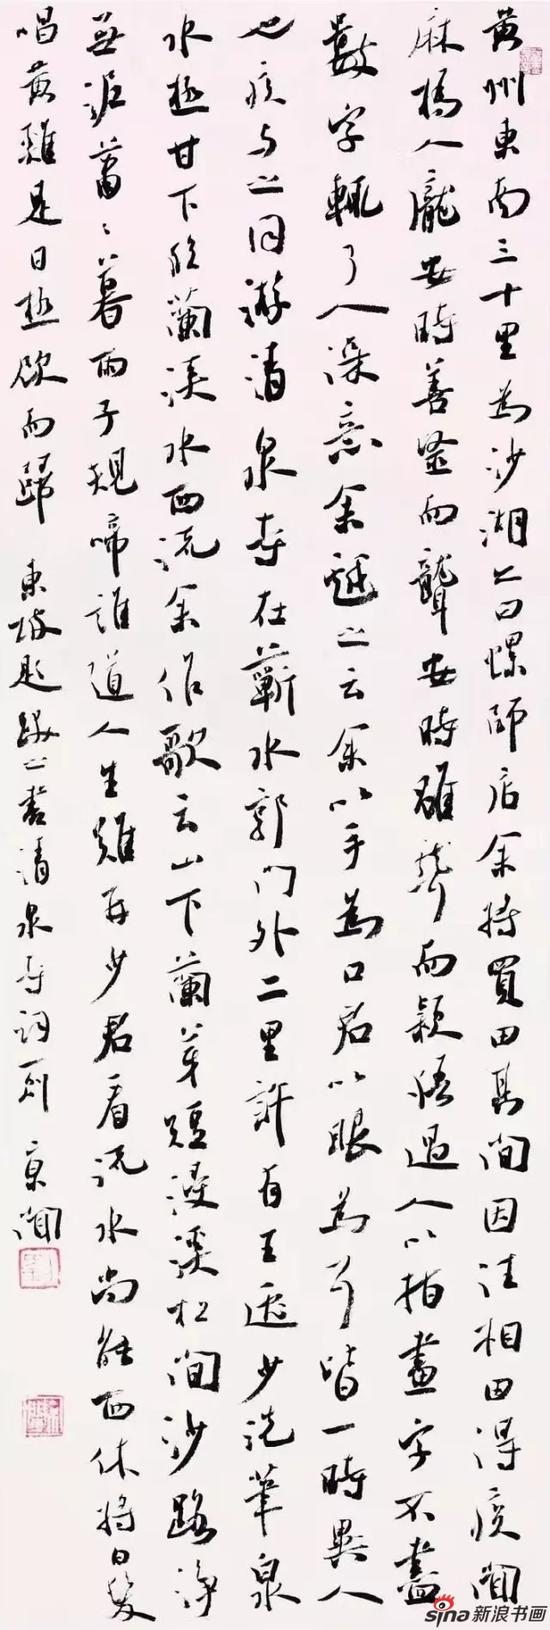 黄州東南三十里為沙湖亦曰螺師店余将買田其間因往相田得疾聞
麻橋人龐安時善醫而聾安時雖聾而穎悟過人以指畫字不盡
數字輒了人深意余戲之云余以手為口君以眼為耳皆一時異人
也疾与之同游清泉寺在蘄水郭門外二里許有王逸少洗筆泉
水極甘下臨蘭溪水西流余作歌云山下蘭芽短浸溪松間沙路淨
無泥蕭〻暮雨子規啼誰道人生難再少君看流水尚能西休將白髮
唱黃雞是日極飲而歸 東坡題跋之書清泉寺詞一則
sina新浪书画